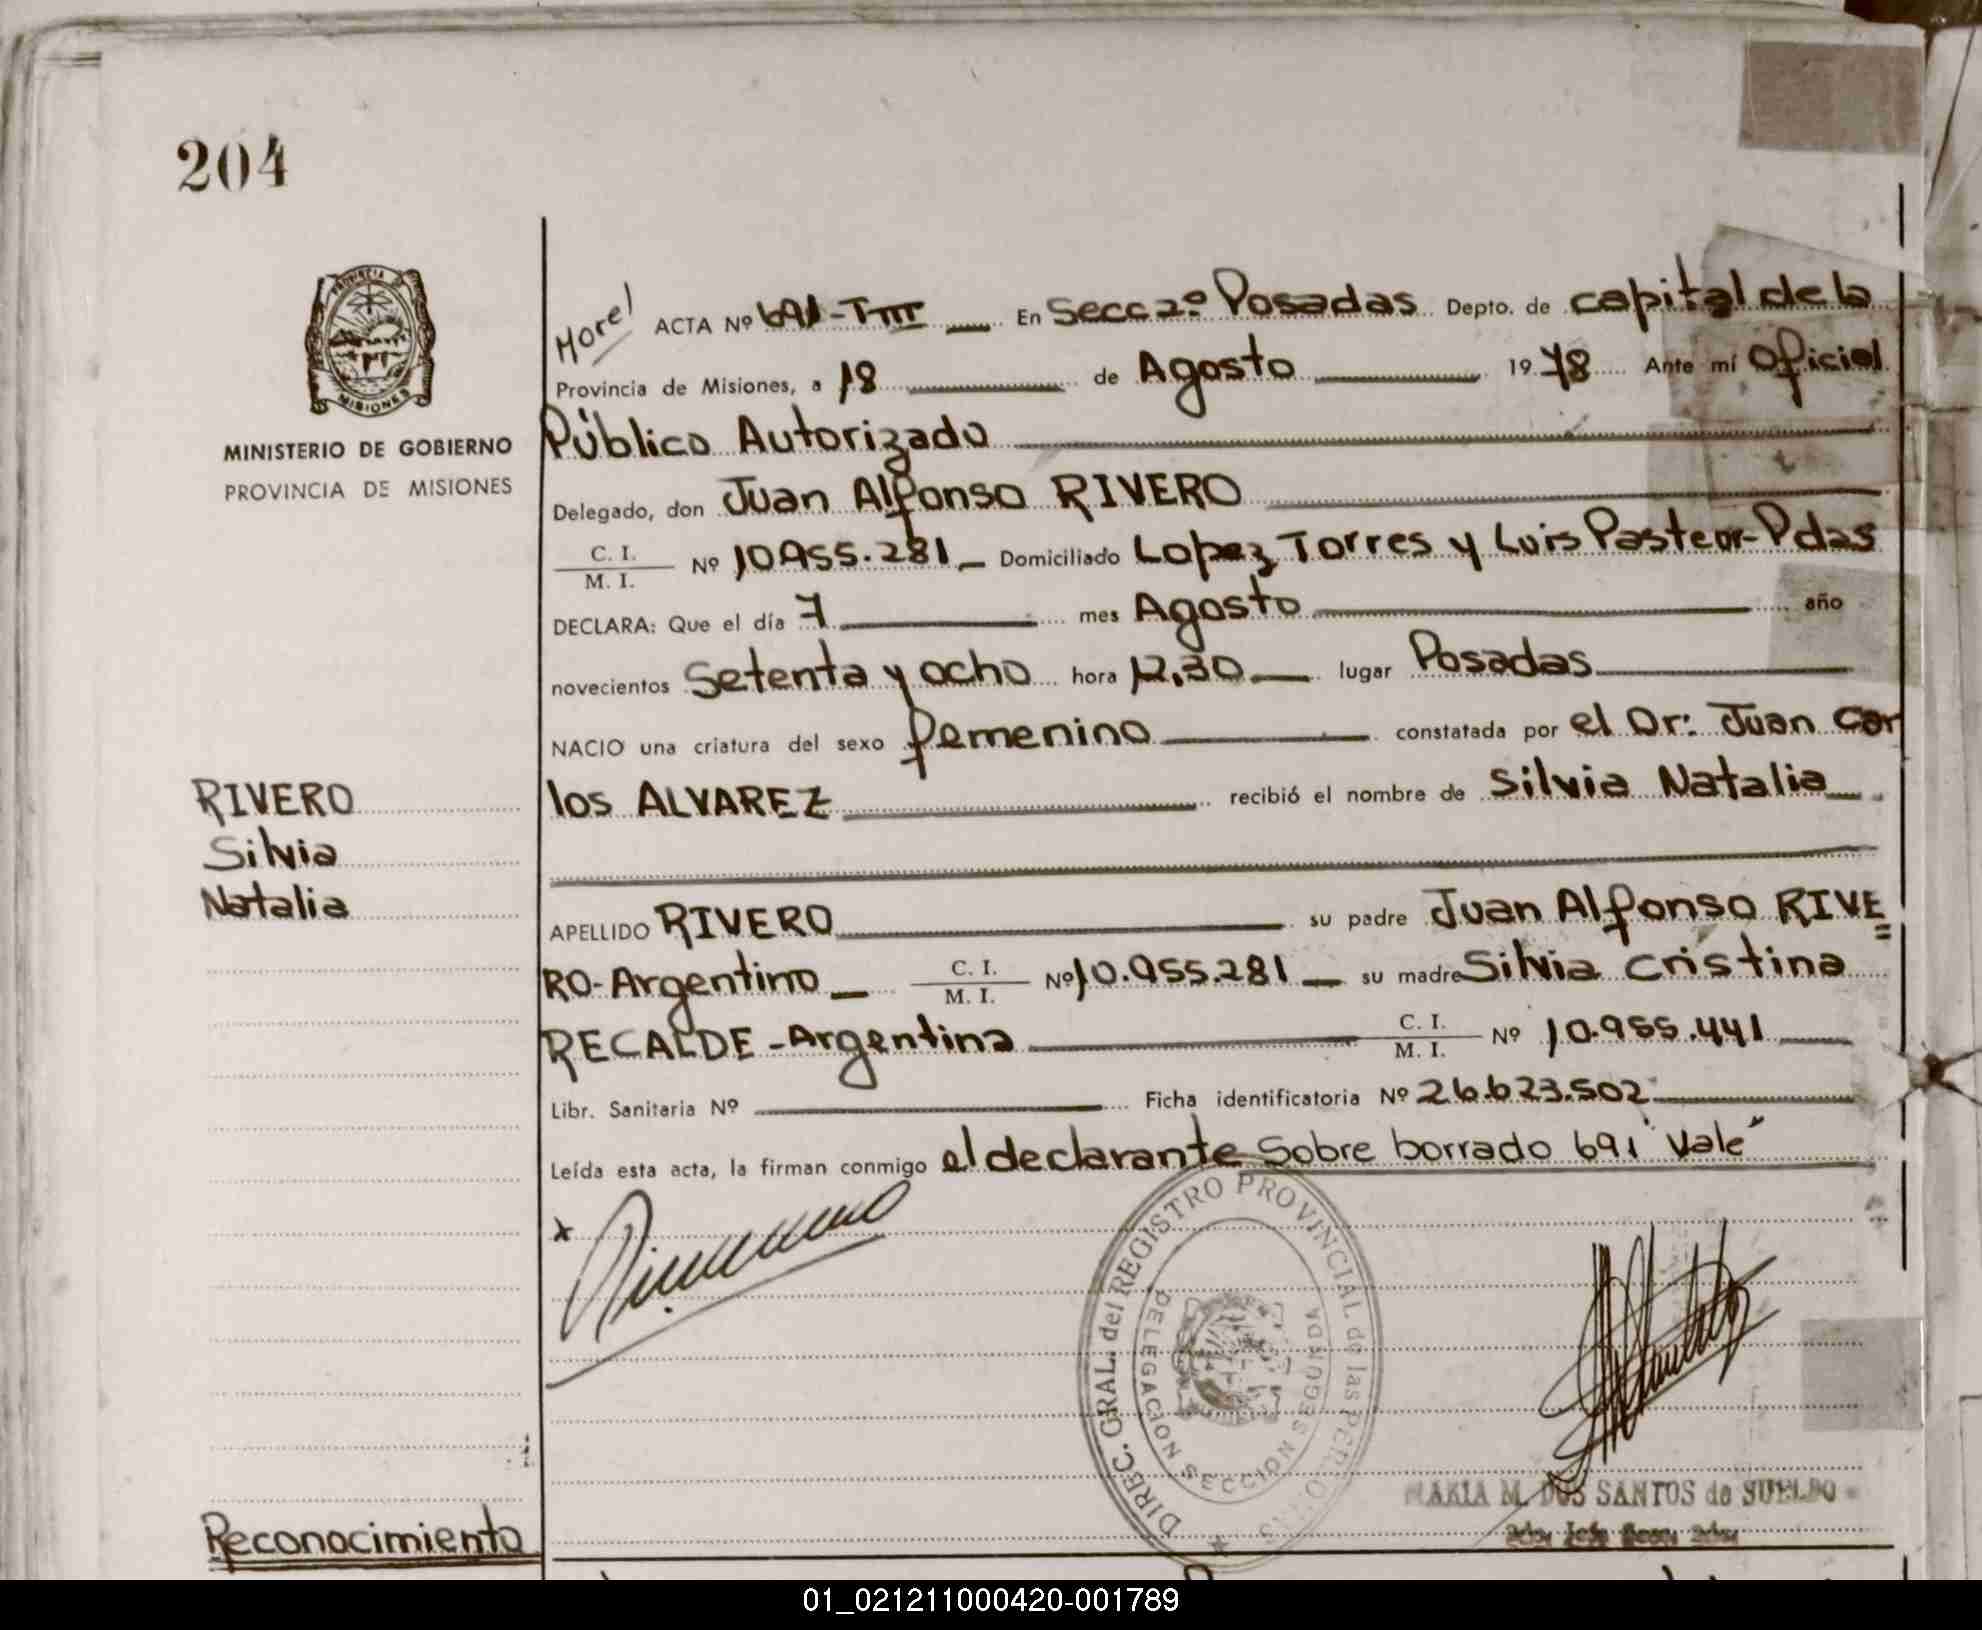 204
PROVINCIA DE
MISIONES
MINISTERIO DE GOBIERNO
PROVINCIA DE MISIONES
Morel
ACTA Nº 691-TIII En Secc 2º Posadas Depto. de capital de la
Provincia de Misiones, a 18 de Agosto 1978 Ante mí Oficial
Público Autorizado
Delegado, don Juan Alfonso RIVERO
C. I.
M. I. Nº 10.955.281 Domiciliado Lopez Torres y Luis Pasteor-Pdas
DECLARA: Que el día 7 mes Agosto año
novecientos Setenta y ocho hora 12,30 lugar Posadas
NACIO una criatura del sexo femenino constatada por el Dr: Juan Car
los ALVAREZ recibió el nombre de Silvia Natalia
RIVERO
Silvia
Natalia
APELLIDO RIVERO su padre Juan Alfonso RIVE=
RO-Argentino C. I. M. I. Nº 10.955.281 su madre Silvia Cristina
RECALDE-Argentina C. I. M. I. Nº 10.955.441
Libr. Sanitaria Nº Ficha identificatoria Nº 26.623.502
Leída esta acta, la firman conmigo el declarante Sobre borrado 691 "Vale"
x
DIREC. GRAL. del REGISTRO PROVINCIAL de las PERSONAS
DELEGACION SECCION SEGUNDA
MARIA M. DOS SANTOS de SUELDO
Reconocimiento
01_021211000420-001789